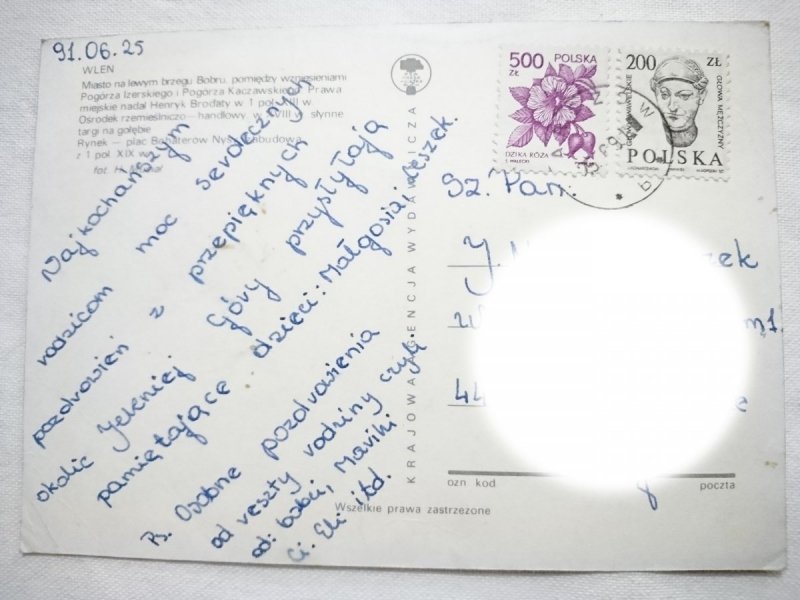 91.06.25
WLEŃ
Miasto na lewym brzegu Bobru, pomiędzy wzniesieniami
Pogórza Izerskiego i Pogórza Kaczawskiego. Prawa
miejskie nadał Henryk Brodaty w 1 poł. XIII w.
Ośrodek rzemieślniczo – handlowy, w XVIII w. słynne
targi na gołębie
Rynek – plac Bohaterów Nysy, zabudowa
z 1 poł. XIX w.
fot. H.
Najkochańszym
rodzicom moc serdecznych
pozdrowień z przepięknych
okolic Jeleniej Góry przysyłają
pamiętające dzieci: Małgosia i Leszek.
Ps. Osobne pozdrowienia
od reszty rodziny czyli
od: babci, Maniki
Ci. Eli itd.
KRAJOWA AGENCJA WYDAWNICZA
Wszelkie prawa zastrzeżone
500 ZŁ
POLSKA
DZIKA RÓŻA
200 ZŁ
GŁOWA MĘŻCZYZNY
POLSKA
Sz. Pan.
J.
zek
m1.
44
e
ozn kod
poczta